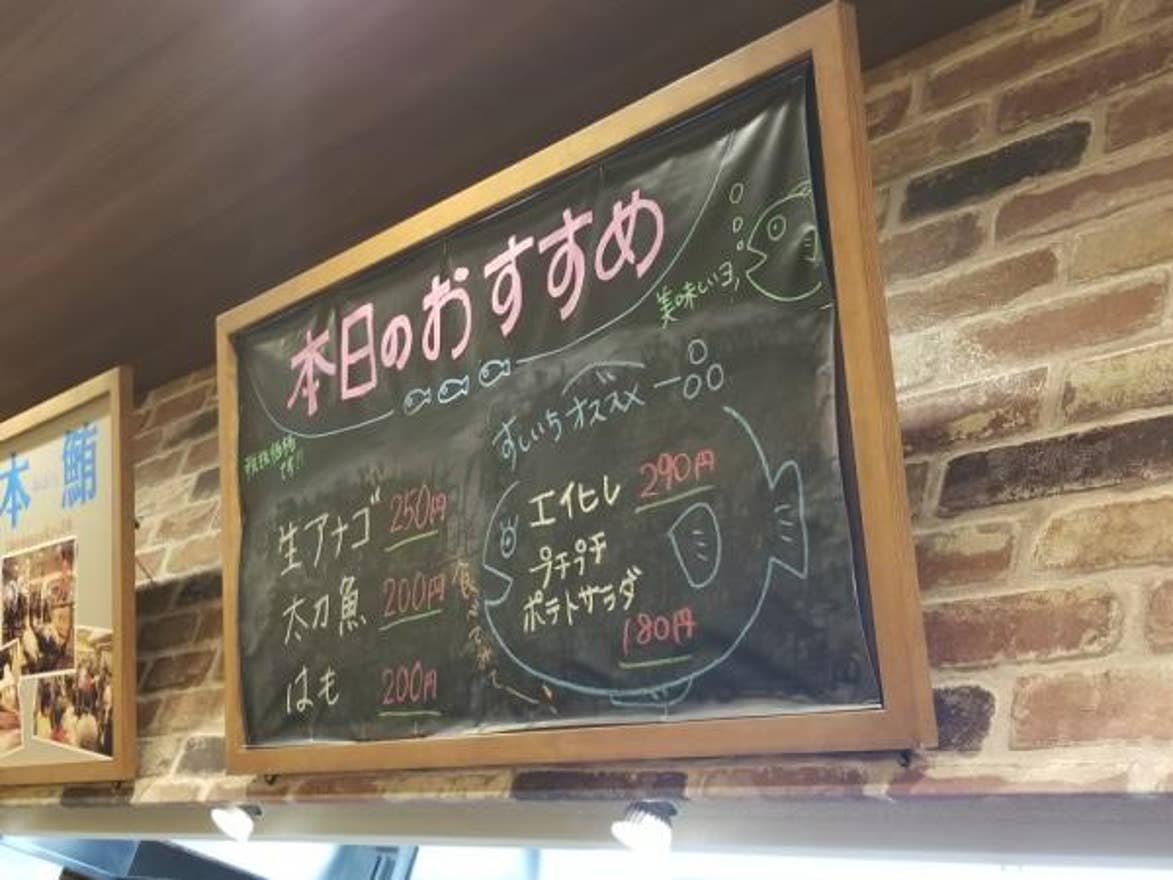 本日のおすすめ
美味しいヨ
税抜価格
です!!
すしいち オススメ
生アナゴ 250円
太刀魚 200円
はも 200円
エイヒレ 290円
プチプチ
ポテトサラダ
180円
食べてみて
本 鮪